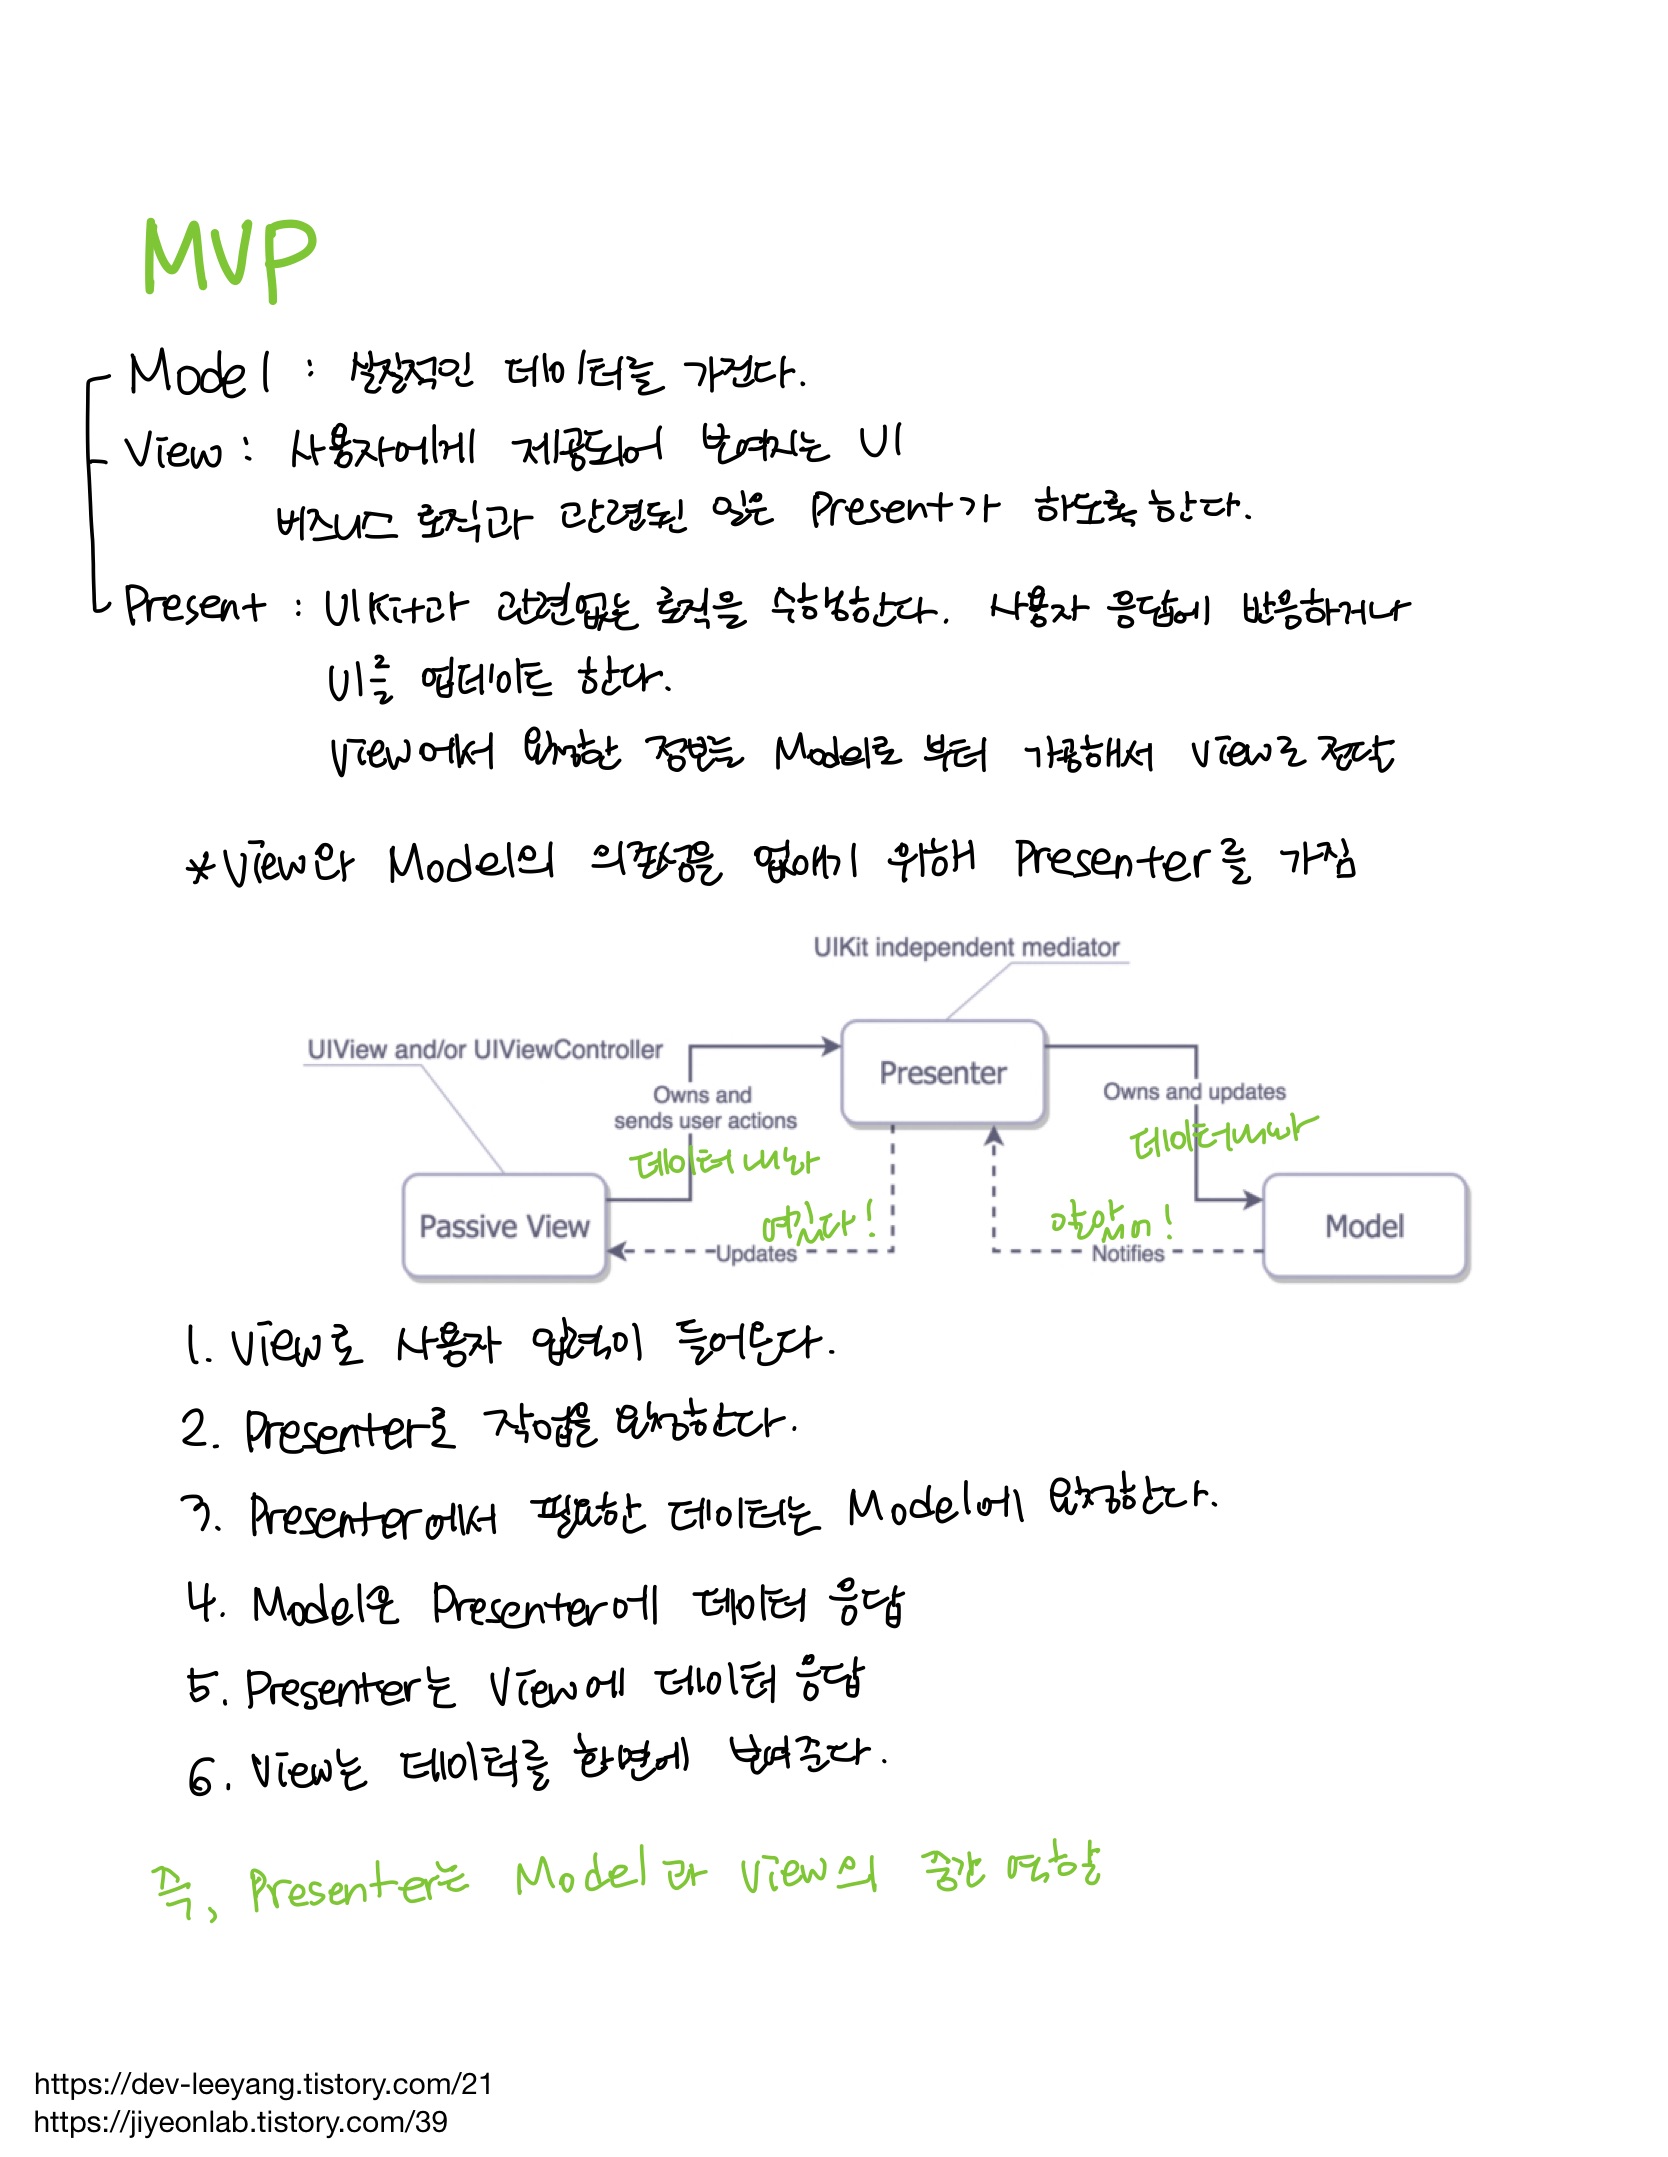 MVP
Model : 실질적인 데이터를 가진다.
View : 사용자에게 제공되어 보여지는 UI
비즈니스 로직과 관련된 일은 Present가 하도록 한다.
Present : UIKit과 관련없는 로직을 수행한다. 사용자 응답에 반응하거나
UI를 업데이트 한다.
View에서 요청한 정보를 Model로 부터 가공해서 View로 전달
*View와 Model의 의존성을 없애기 위해 Presenter를 가짐
UIKit independent mediator
UIView and/or UIViewController
Presenter
Owns and
sends user actions
Owns and updates
데이터 내놔
데이터내놔
Passive View
여깄다!
알았어!
Model
Updates
Notifies
1. View로 사용자 입력이 들어온다.
2. Presenter로 작업을 요청한다.
3. Presenter에서 필요한 데이터는 Model에 요청한다.
4. Model은 Presenter에 데이터 응답
5. Presenter는 View에 데이터 응답
6. View는 데이터를 화면에 보여준다.
즉, Presenter는 Model과 View의 중간 역할
https://dev-leeyang.tistory.com/21
https://jiyeonlab.tistory.com/39